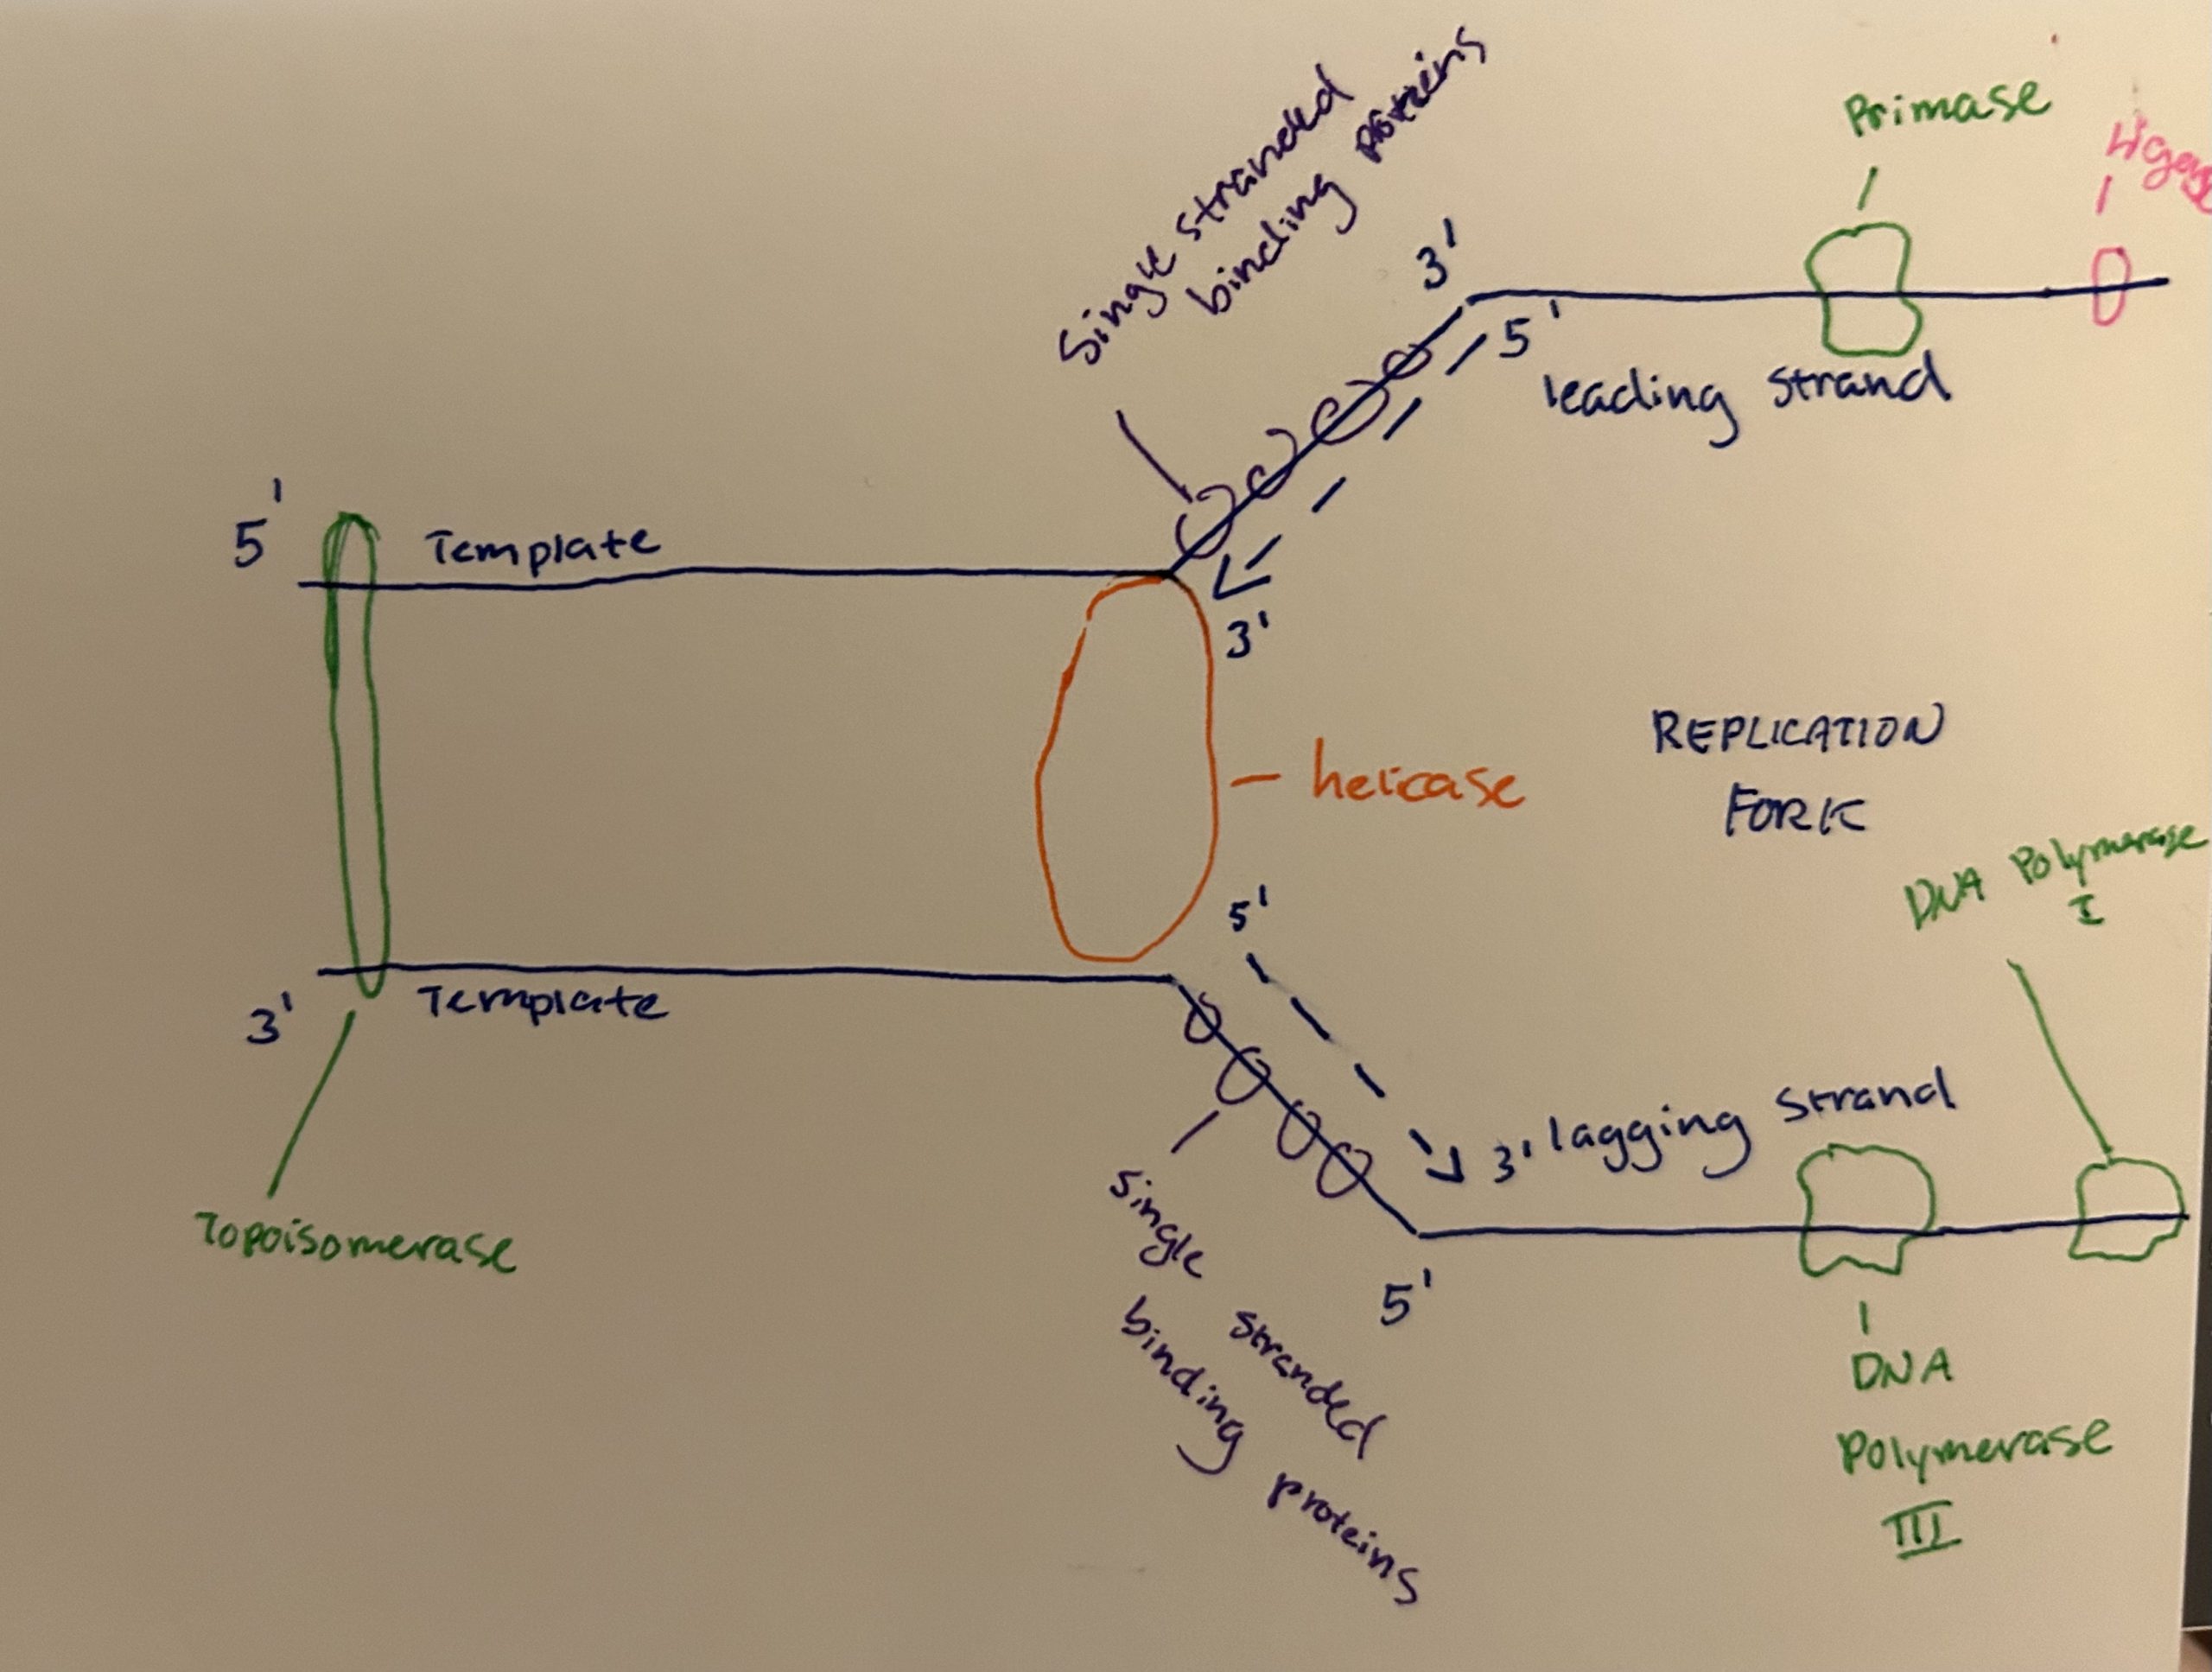 Single stranded
binding proteins
Primase
Ligase
3'
5'
leading strand
5'
Template
3'
REPLICATION
FORK
helicase
DNA Polymerase
I
5'
3'
Template
3' lagging strand
Topoisomerase
5'
Single stranded
binding proteins
DNA
Polymerase
III